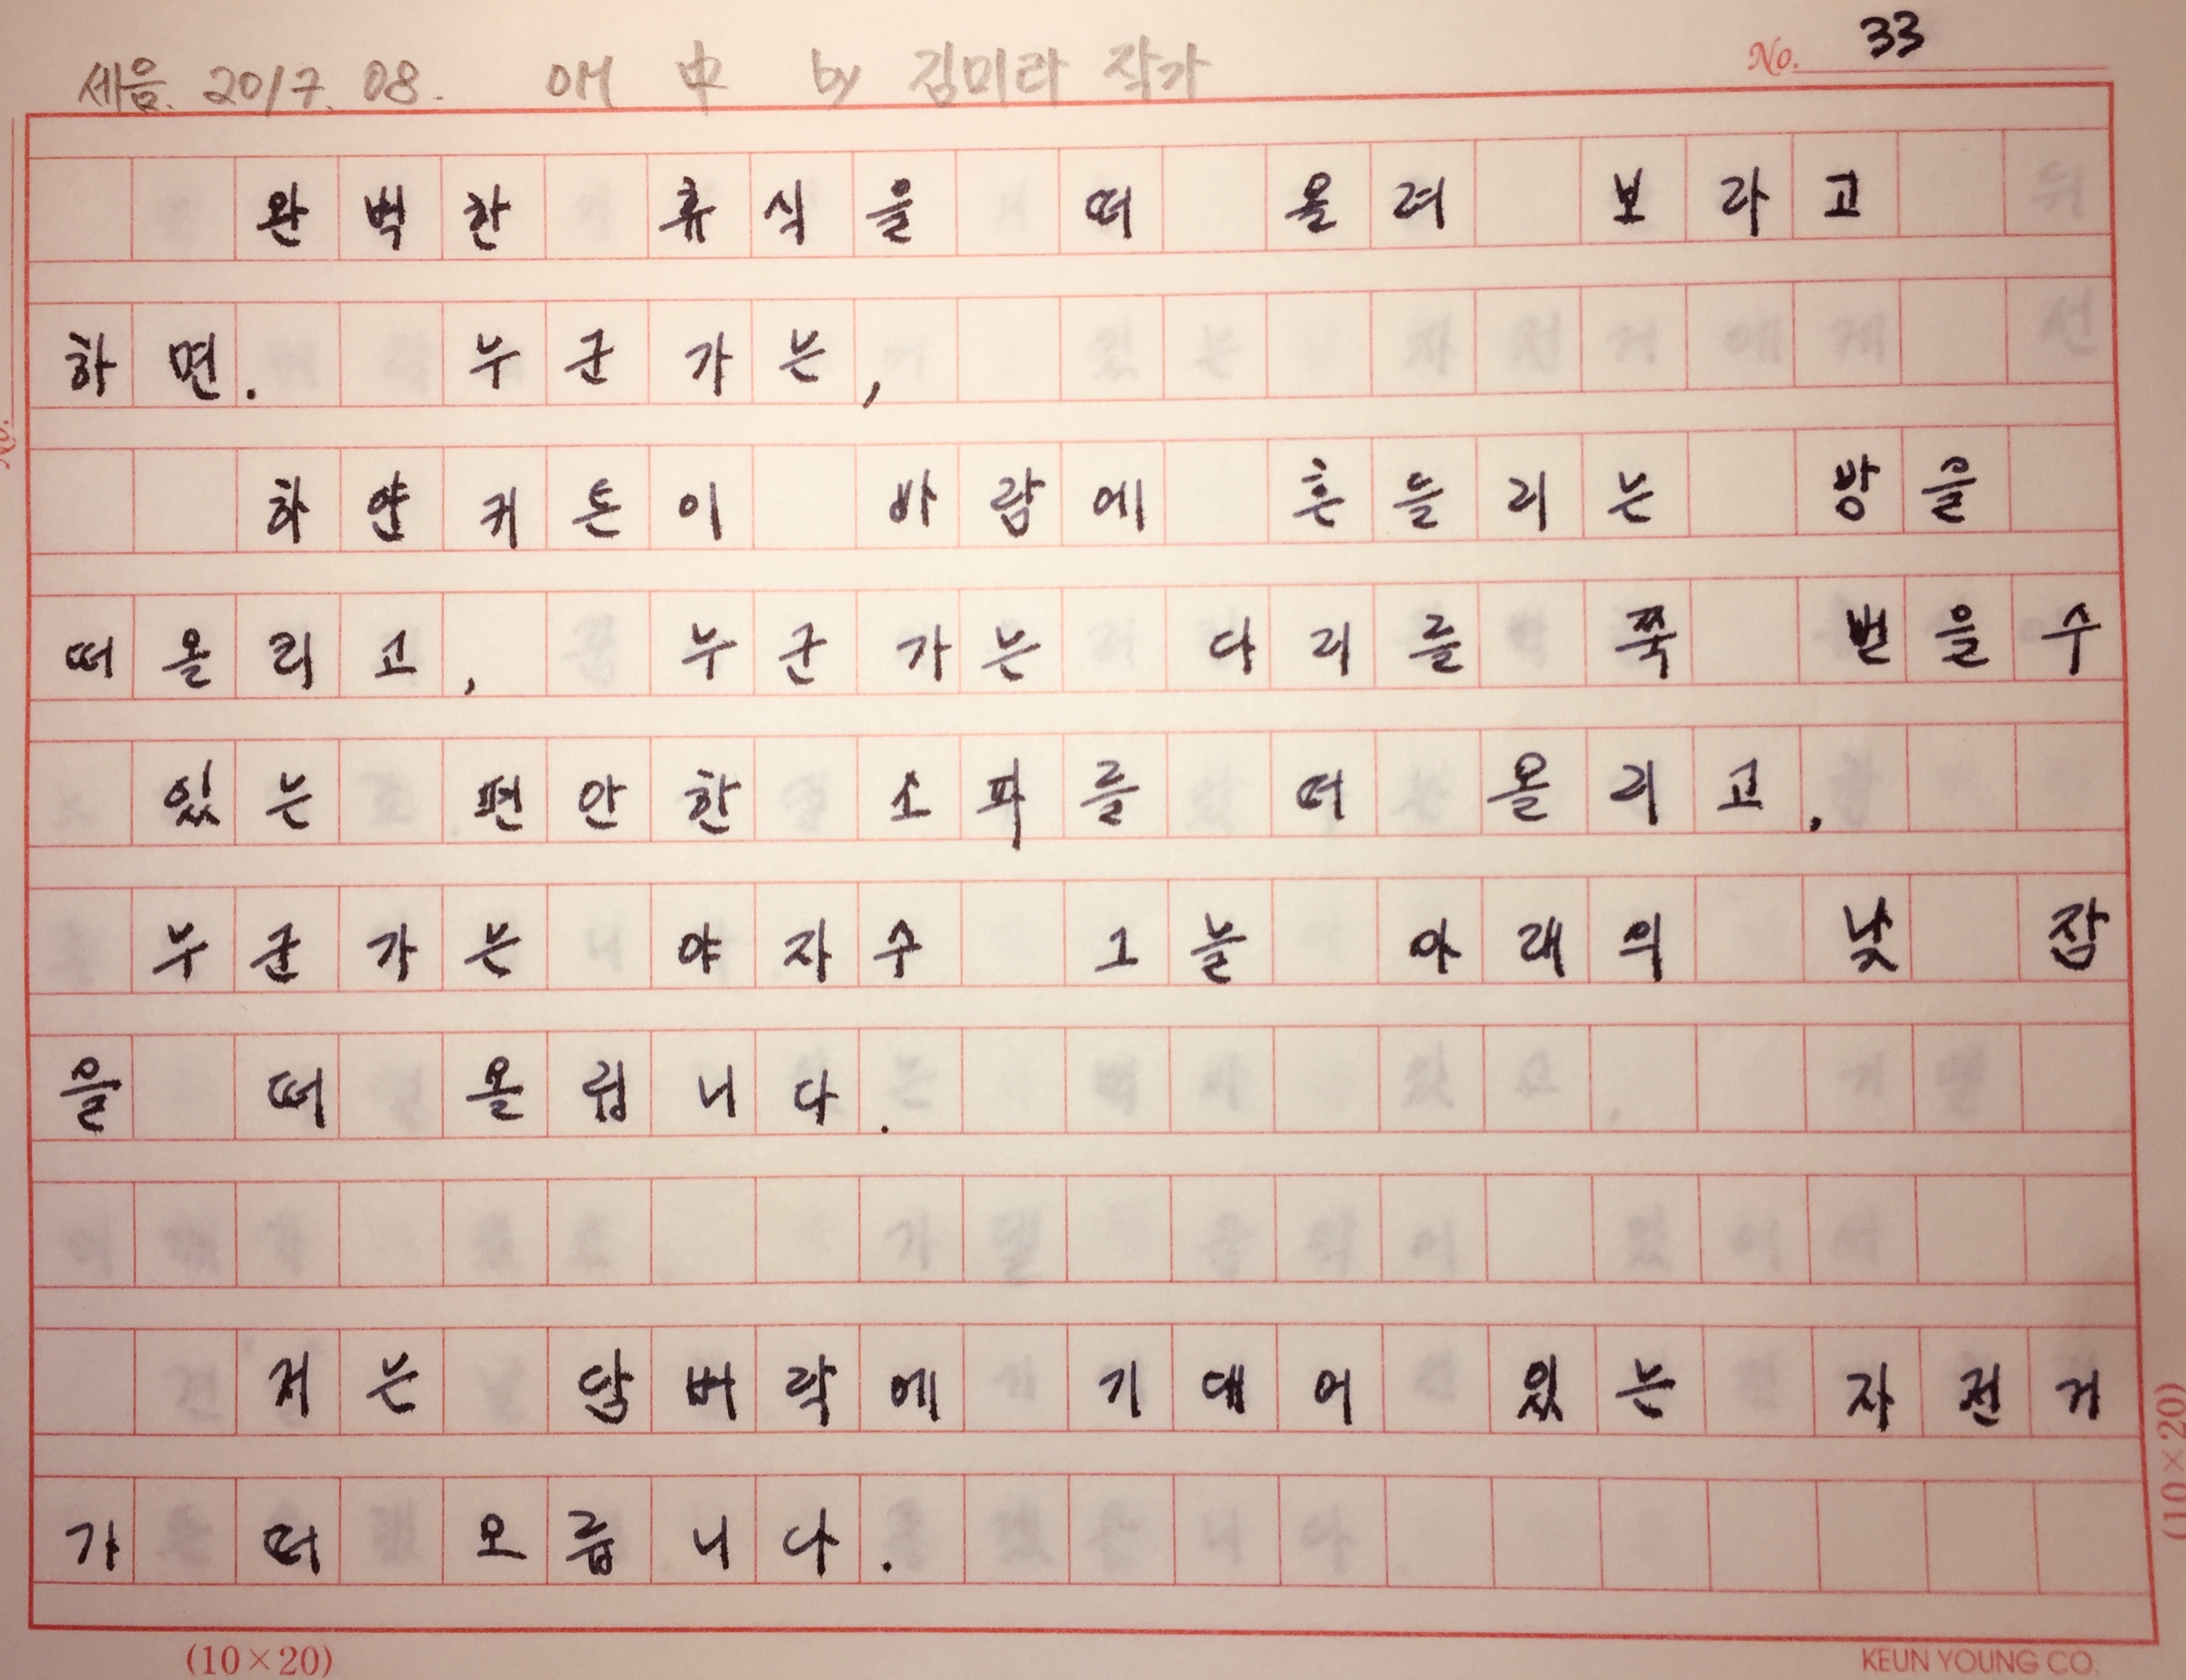 세음. 2017. 08. 애 中 by 김미라 작가
No. 33
완벽한 휴식을 떠 올려 보라고
하면. 누군가는,
하얀커튼이 바람에 흔들리는 방을
떠올리고, 누군가는 다리를 쭉 뻗을수
있는 편안한 소파를 떠 올리고.
누군가는 야자수 그늘 아래의 낮 잠
을 떠 올립니다.
저는 담벼락에 기대어 있는 자전거
가 떠 오릅니다.
(10×20)
(10×20)
KEUN YOUNG CO.